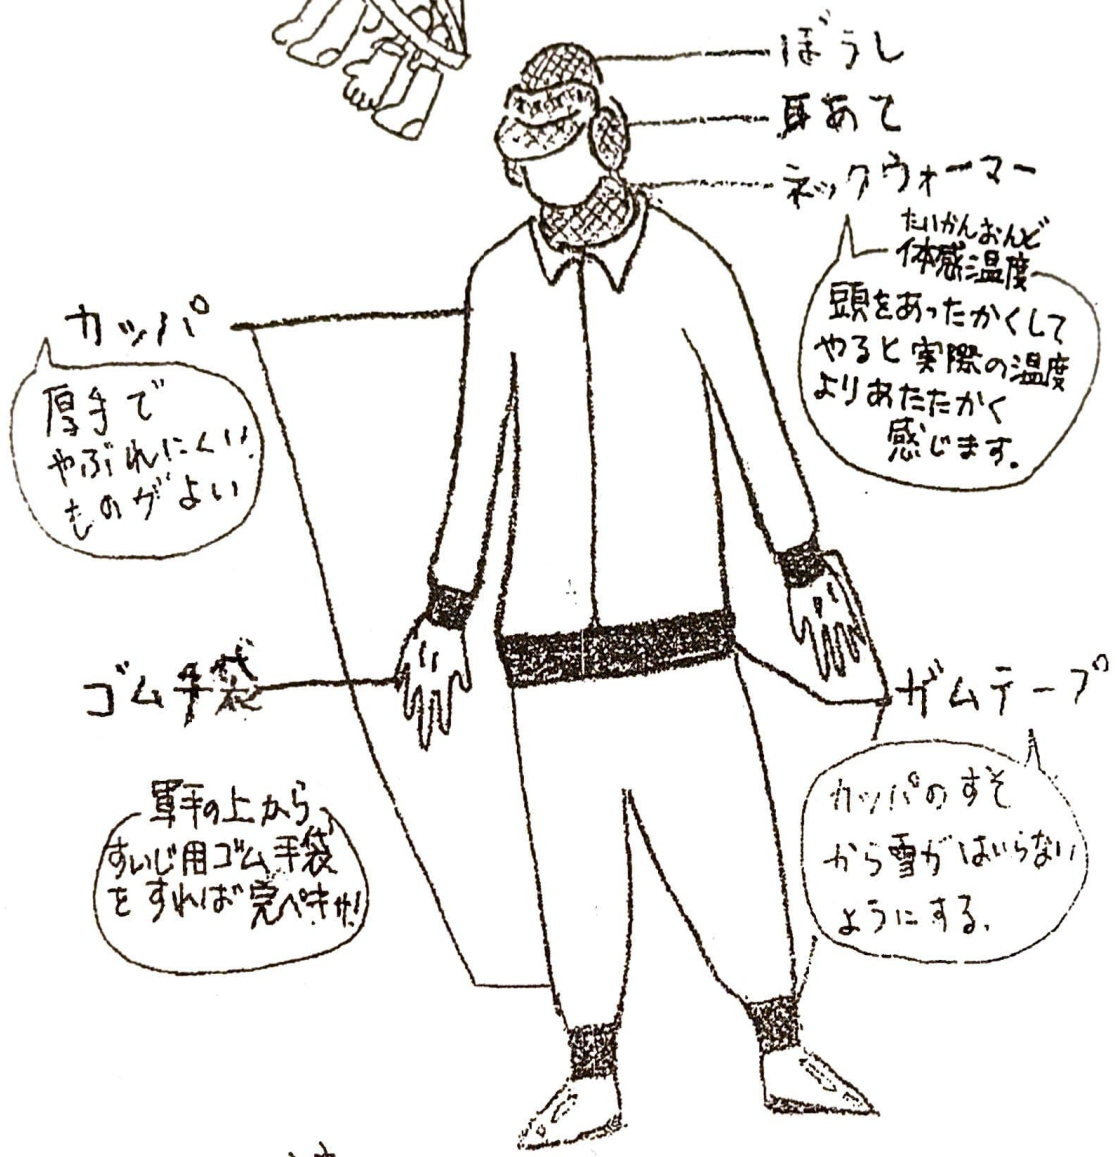 ぼうし
耳あて
ネックウォーマー
たいかんおんど
体感温度
頭をあったかくして
やると実際の温度
よりあたたかく
感じます。
カッパ
厚手で
やぶれにくい
ものがよい
ゴム手袋
軍手の上から
すいじ用ゴム手袋
をすれば完ペキサ!
ガムテープ
カッパのすそ
から雪がはいらない
ようにする。